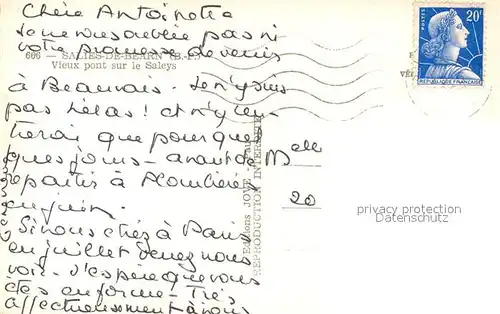 Chère Antoinette
Je ne vous oublie pas ni
votre promesse de venir
606 — SALIES-DE-BEARN (B.-P.)
Vieux pont sur le Saleys
à Beauvais. Je n'y suis
pas hélas! et n'y
que pour quel
ques jours - avant de
repartir à Plombières
en juin.
Si nous êtes à Paris
en juillet venez nous
voir. J'espère que vous
êtes en forme - Très
affectueusement à vous
Melle
20
Editions JOVE
REPRODUCTION INTERDITE
POSTES
20F
REPUBLIQUE FRANÇAISE
privacy protection
Datenschutz